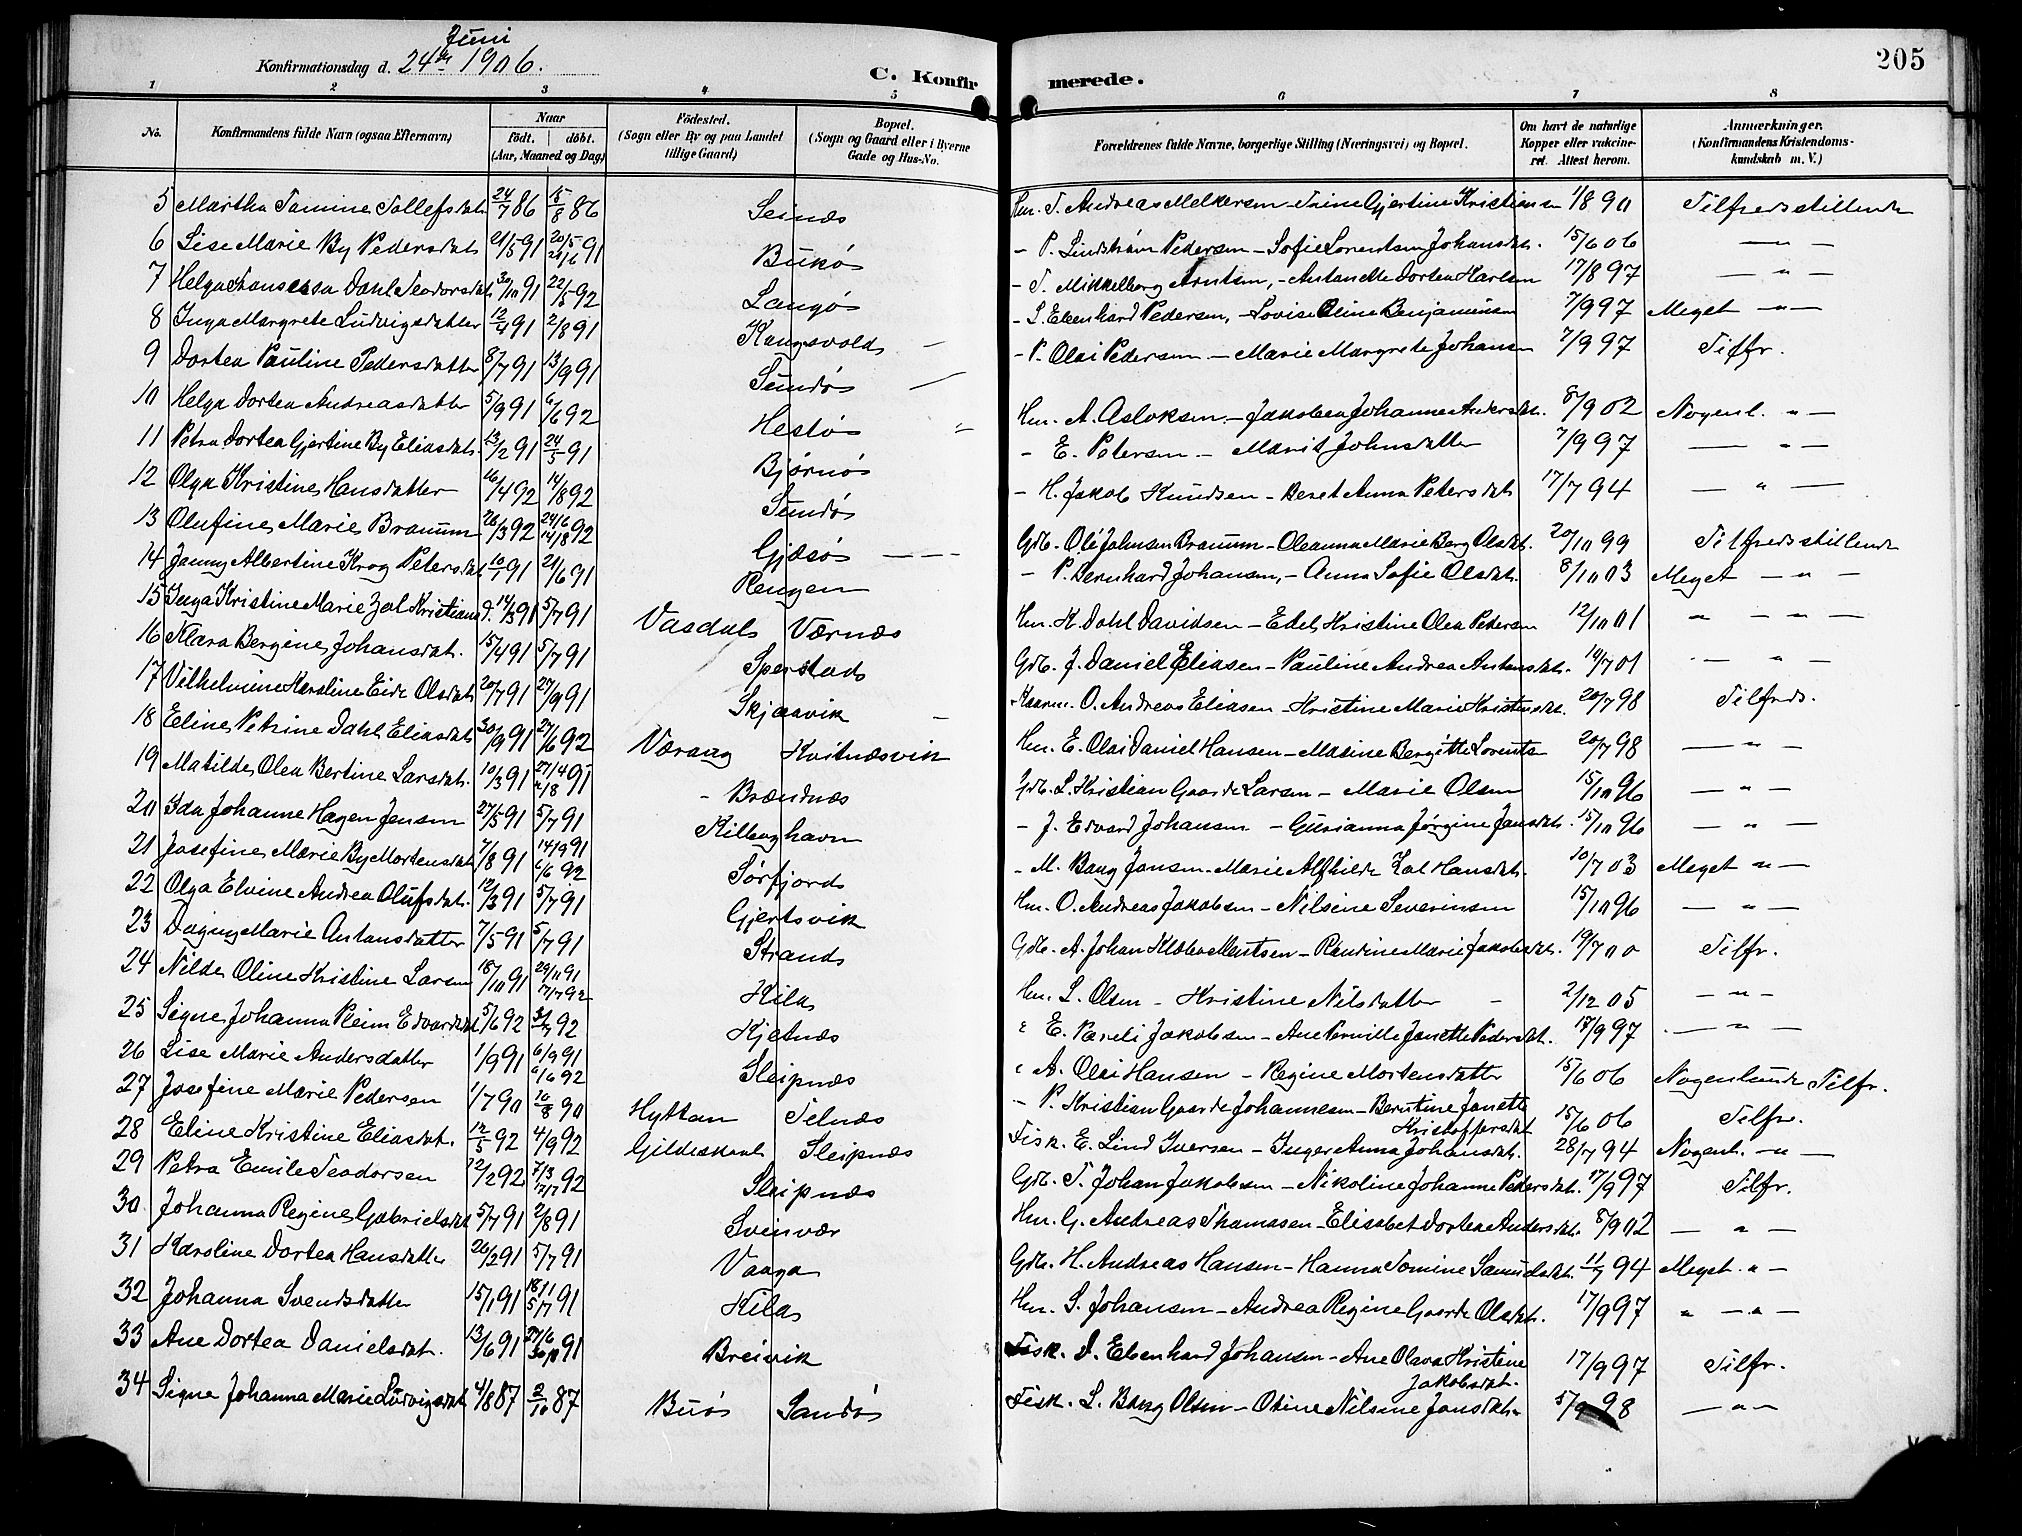 205
Juni
Konfirmationsdag d. 24de 1906.
C. Konfirmerede.
1 2 3 4 5 6 7 8
No.
Konfirmandens fulde Navn (ogsaa Efternavn)
Naar
födt. döbt.
(Aar, Maaned og Dag)
Födested.
(Sogn eller By og paa Landet
tillige Gaard)
Bopæl.
(Sogn og Gaard eller i Byerne
Gade og Hus-No.
Forældrenes fulde Navne, borgerlige Stilling (Næringsvei) og Bopæl.
Om havt de naturlige
Kopper eller vakcine-
ret. Attest herom.
Anmærkninger.
(Konfirmandens Kristendoms-
kundskab m. V.)
5 Martha Tomine Tollefsdat. 24/7 86 15/8 86 Seines Hm. T. Andreas Melkersen - Trine Gjertine Kristiansen 1/8 90 Tilfredsstillende
6 Lise Marie By Pedersdat. 21/5 91 20/5 21/6 91 Bukø - P. Lindstrøm Pedersen - Sofie Lorentsen Johansdat. 15/6 06 — " —
7 Helga Dahl Teodorsdat. 30/10 91 22/5 92 Langø - T. Mikkelborg Arntsen, - Antonette Dortea Karlsen 17/8 97 — " —
8 Inga Margrete Ludvigsdatter 12/4 91 2/8 91 Kongsvold - L. Edenhard Pedersen, - Lovise Oline Benjaminsen 7/9 97 Meget — " —
9 Dortea Pauline Pedersdatter 8/7 91 13/9 91 Sundø - P. Olai Pedersen - Marie Margrete Johansen 7/9 97 Tilfr.
10 Helga Dortea Andreasdatter 5/9 91 6/6 92 Hestø Hm. A. Asloksen - Jakobea Johanne Andersdat. 8/9 02 Nogenl. " —
11 Petra Dortea Gjertine By Eliasdat. 13/2 91 24/5 91 Bjørnø - E. Petersen - Marit Johnsdatter 7/9 97 — " —
12 Olga Kristine Hansdatter 16/4 92 14/8 92 Sundø - H. Jakob Knudsen - Beret Anna Petersdat. 17/7 94 — " —
13 Olufine Marie Braaum 26/3 92 24/6 14/8 92 Gjæsø Gdb. Ole Johnsen Braaum - Oleanna Marie Berg Olsdat. 20/10 99 Tilfredsstillende
14 Jenny Albertine Krog Petersdat. 10/1 91 21/6 91 Rengen - P. Bernhard Johansen, - Anna Sofie Olsdat. 8/10 03 Meget — " —
15 Inga Kristine Marie Kristiansd. 14/3 91 5/7 91 Vasdal Værnes Hm. K. Dahl Davidsen - Edel Kristine Olea Petersen 12/10 01 " — " —
16 Klara Bergine Johansdat. 15/4 91 5/7 91 Sperstad Gdb. J. Daniel Eliasen - Pauline Andrea Antonsdat. 14/7 01 — " —
17 Vilhelmine Karoline Eide Olsdat. 20/7 91 27/9 91 Skjæsvik O. Andreas Eliasen - Kristine Marie 20/7 98 Tilfreds.
18 Eline Petrine Dahl Eliasdat. 30/9 91 27/6 92 Værang Kvitnæsvik Hm. E. Olai Daniel Hansen - Masine Bergitte Lorents 20/7 98 — " —
19 Matilde Olea Bertine Larsdat. 10/3 91 27/4 2/8 91 - Brændnæs Gdb. L. Kristian Gaarde Larsen - Marie Olsen 15/10 96 — " —
20 Ida Johanne Hagen Jensen 27/5 91 5/7 91 Kilboghavn - J. Edvard Johansen - Gurianna Jørgine Jansdat. 15/10 96 — " —
21 Josefine Marie By Mortensdat. 7/8 91 14/9 91 6/6 92 Sørfjord - M. Bang Jansen - Marie Alfhilde Hansdat. 10/7 03 Meget " —
22 Olga Elvine Andrea Olufsdat. 12/3 91 5/7 91 Gjertsvik Hm. O. Andreas Jakobsen - Nilsine Severinsen 15/10 96 — " —
23 Dagny Marie Antonsdatter 7/5 91 5/7 91 Strand Gdb. A. Johan Klæbo Mentsen - Randine Marie Jakobsdat. 19/7 00 Tilfr.
24 Nilde Oline Kristine Larsen 18/10 91 29/11 91 17/7 92 Kila Hm. L. Olsen - Kristine Nilsdatter 2/12 05 — " —
25 Signe Johanna Pleim Edvardsdat. 5/6 92 3/7 92 Kjetnæs " E. Pareli Jakobsen - Ane Pernille Janette Pedersdat. 17/9 97 — " —
26 Lise Marie Andersdatter 1/9 91 6/9 91 6/6 92 Sleipnæs " A. Olai Hansen - Regine Mortensdatter 15/6 06 Nogenlunde Tilfr.
27 Josefine Marie Pedersen 1/7 90 10/8 90 Hyttan Telnæs - P. Kristian Gaarde Johannesen - Berntine Janette
Kristoffersdat. 15/6 06 Tilfr.
28 Eline Kristine Eliasdat. 12/5 92 4/9 92 Gildeskaal Sleipnæs Fisk. E. Lind Iversen - Inger Anna Johansdat. 28/7 94 Nogenl. — " —
29 Petra Emilie Teodorsen 12/2 92 7/3 17/7 92 Sleipnæs Gdb. T. Johan Jakobsen - Nikoline Johanne Pedersdat. 17/9 97 Tilfr.
30 Johanna Regine Gabrielsdat. 5/7 91 2/8 91 Svinvær Hm. G. Andreas Thomasen - Elisabet Dortea Andersdat. 8/9 02 — " —
31 Karoline Dortea Hansdatter 26/2 91 5/7 91 Vaaga Gdb. H. Andreas Hansen - Hanna Tomine Samuelsdat. 11/7 94 Meget " —
32 Johanna Svendsdatter 15/1 91 18/1 5/7 91 Kila Hm. S. Johansen - Andrea Regine Gaarde Olsdat. 17/9 97 " — " —
33 Ane Dortea Danielsdat. 13/6 91 27/6 91 Breivik Fisk. D. Edenhard Johansen - Ane Olava Kristine
Jakobsdat. 17/9 97 Tilfr.
34 Signe Johanna Marie Ludvigsdat. 4/8 87 2/10 87 Buø Sandø Fisk. L. Bang Olsen - Otine Nilsine Jansdat. 5/9 98 — " —